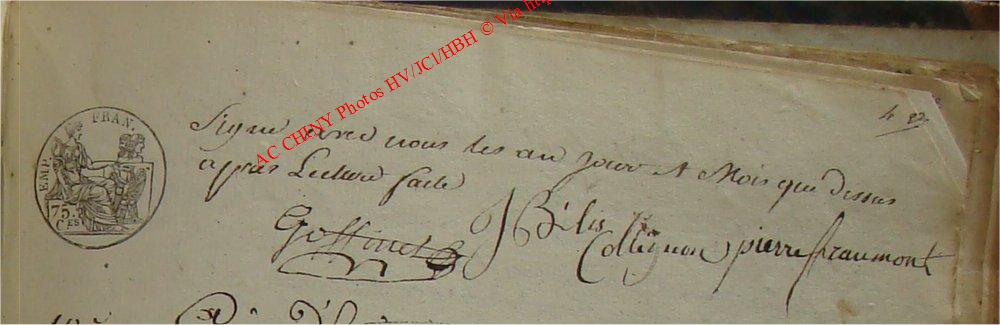 AC CHENY Photos HV/JCl/HBH © Via
4 82
EMP. FRAN.
75.
CES
Signé avec nous les an jour et Mois que dessus
après Lecture faite
Goffinet J Bélis Collignon pierre fraumont